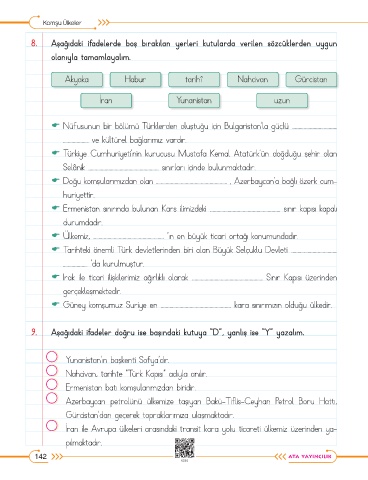 Komşu Ülkeler
8. Aşağıdaki ifadelerde boş bırakılan yerleri kutularda verilen sözcüklerden uygun
olanıyla tamamlayalım.
Akyaka Habur tarihî Nahcivan Gürcistan
İran Yunanistan uzun
Nüfusunun bir bölümü Türklerden oluştuğu için Bulgaristan'la güçlü ........................
............... ve kültürel bağlarımız vardır.
Türkiye Cumhuriyeti'nin kurucusu Mustafa Kemal Atatürk'ün doğduğu şehir olan
Selânik ........................ sınırları içinde bulunmaktadır.
Doğu komşularımızdan olan ........................, Azerbaycan'a bağlı özerk cum-
huriyettir.
Ermenistan sınırında bulunan Kars ilimizdeki ........................ sınır kapısı kapalı
durumdadır.
Ülkemiz, ........................ 'ın en büyük ticari ortağı konumundadır.
Tarihteki önemli Türk devletlerinden biri olan Büyük Selçuklu Devleti ...............
............... 'da kurulmuştur.
Irak ile ticari ilişkilerimiz ağırlıklı olarak ........................ Sınır Kapısı üzerinden
gerçekleşmektedir.
Güney komşumuz Suriye en ........................ kara sınırımızın olduğu ülkedir.
9. Aşağıdaki ifadeler doğru ise başındaki kutuya "D", yanlış ise "Y" yazalım.
Yunanistan'ın başkenti Sofya'dır.
Nahcivan, tarihte "Türk Kapısı" adıyla anılır.
Ermenistan batı komşularımızdan biridir.
Azerbaycan petrolünü ülkemize taşıyan Bakü-Tiflis-Ceyhan Petrol Boru Hattı,
Gürcistan'dan geçerek topraklarımıza ulaşmaktadır.
İran ile Avrupa ülkeleri arasındaki transit kara yolu ticareti ülkemiz üzerinden ya-
pılmaktadır.
142
ATA YAYINCILIK